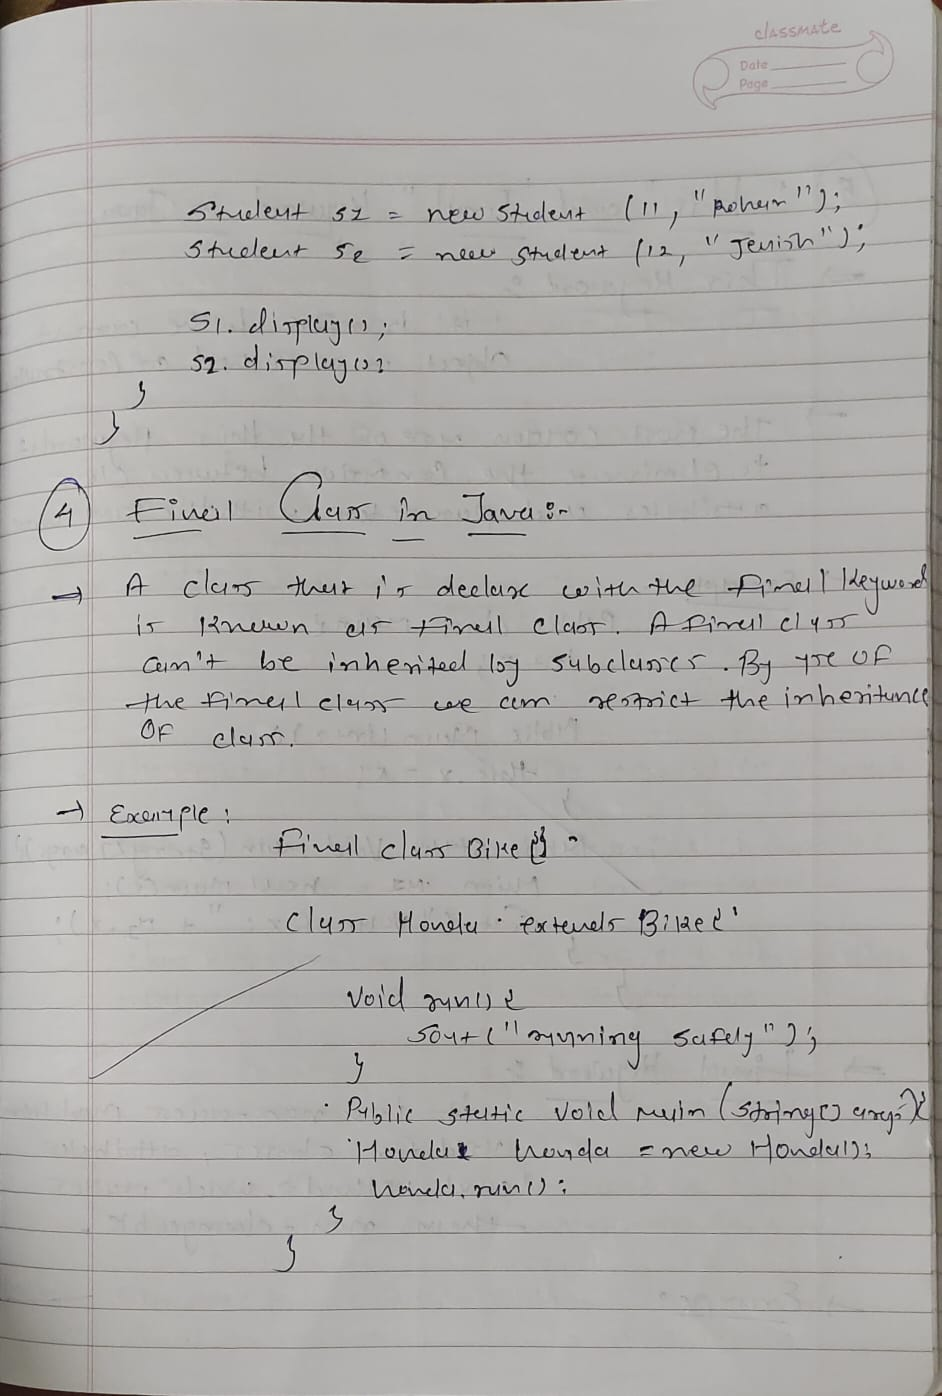 classmate
Date
Page
Student s1 = new Student (11, "Rohan");
Student s2 = new Student (12, "Jenish");
S1. display();
S2. display();
}
}
4 Final Class in Java :-
→ A class that is declare with the final Keyword
is Known as final Class. A final class
can't be inherited by subclasses. By use of
the final class we can restrict the inheritance
OF class.
→ Example :
final class Bike {}
Class Honda extends Bike {
Void run() {
Sout ("running safely");
}
Public static Void main (String[] args) {
Honda honda = new Honda();
honda. run();
}
}